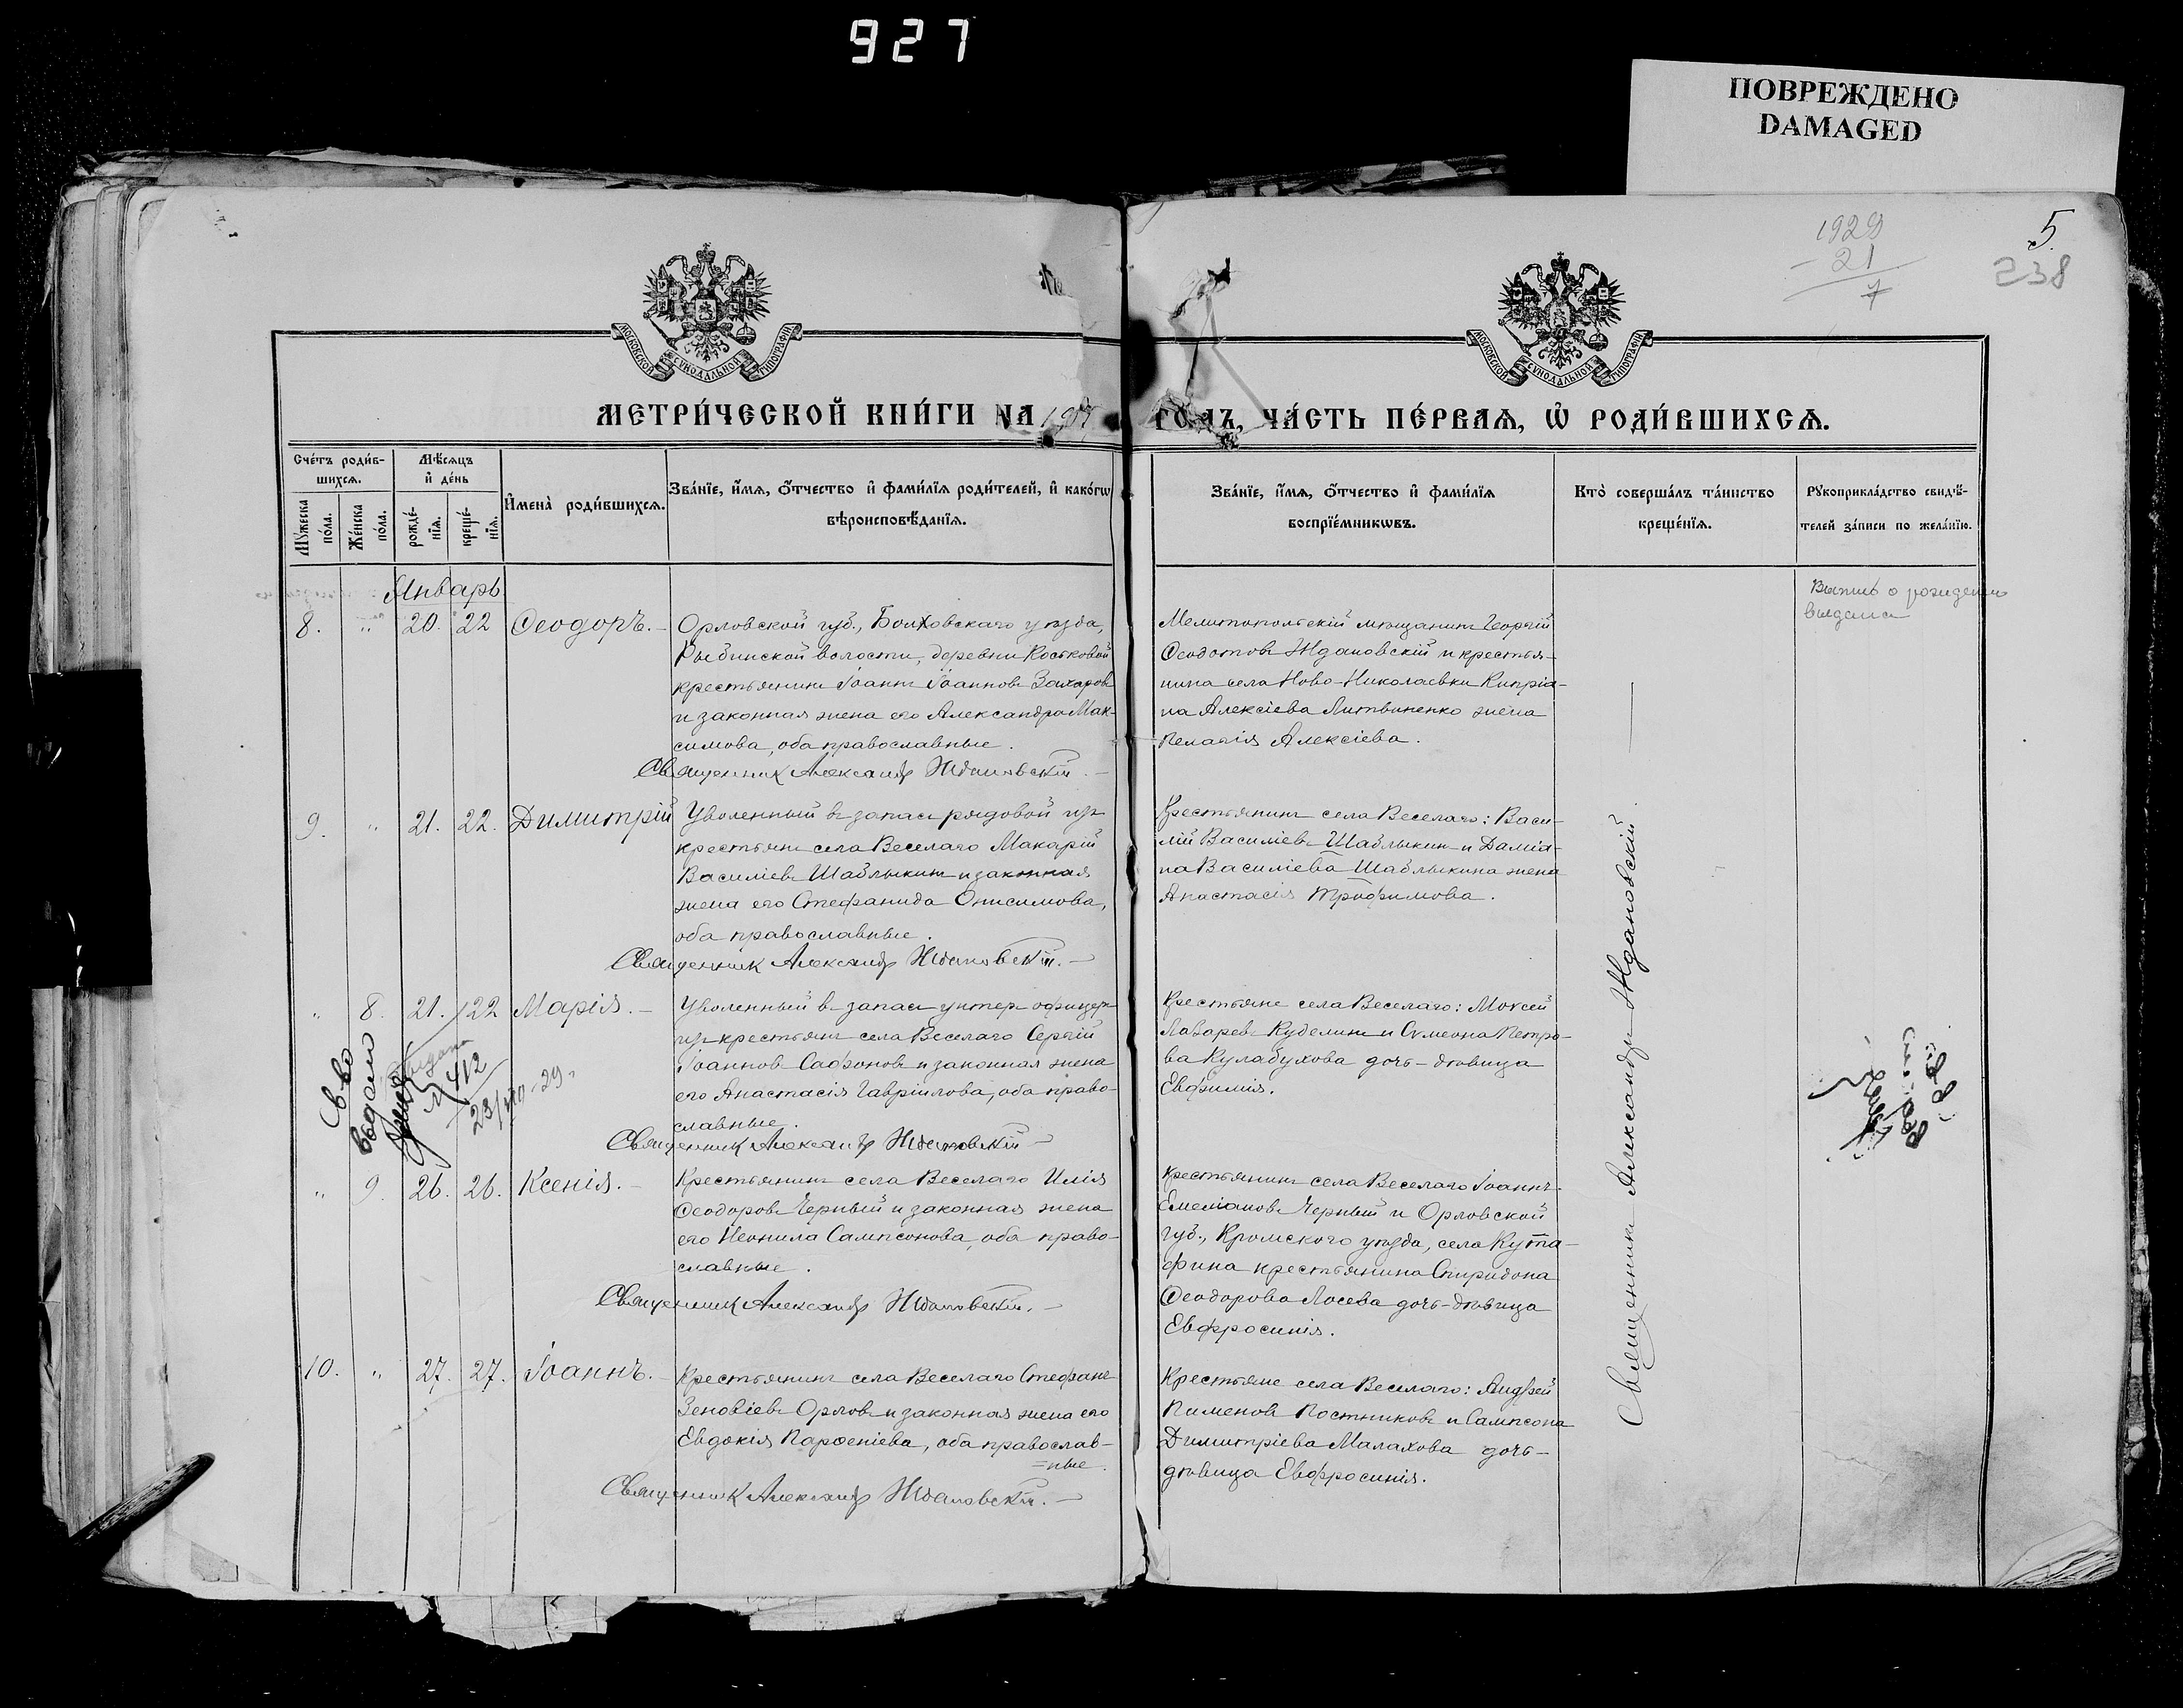 927
ПОВРЕЖДЕНО
DAMAGED
1929
- 21
7
5
238
МОСКОВСКОЙ СѴНОДАЛЬНОЙ ТИПОГРАФІИ
МОСКОВСКОЙ СѴНОДАЛЬНОЙ ТИПОГРАФІИ
МЕТРИ́ЧЕСКОЙ КНИ́ГИ НА 190 ГОДЪ, ЧА́СТЬ ПЕ́РВАѦ, Ѡ҆ РОДИ́ВШИХСѦ.
Сче́тъ роди́в-
шихсѧ.
Мꙋ́жеска по́ла.
Же́нска по́ла.
Мѣ́сѧцъ
и҆ де́нь
рожде́-
нїѧ.
креще́-
нїѧ.
И҆мена̀ роди́вшихсѧ.
Зва́нїе, и҆́мѧ, ѻ҆́тчество и҆ фами́лїѧ роди́телей, и҆ како́гѡ
вѣроисповѣ́данїѧ.
Зва́нїе, и҆́мѧ, ѻ҆́тчество и҆ фами́лїѧ
воспрїе́мникѡвъ.
Кто̀ соверша́лъ та́инство
креще́нїѧ.
Рꙋкоприкла́дство свидѣ́-
телей за́писи по жела́нїю.
Январь
8. " 20. 22 Ѳеодоръ. –
Орловской губ., Болховскаго уѣзда,
Рыбинской волости, деревни Костковой
крестьянинъ Іоаннъ Іоанновъ Захаровъ
и законная жена его Александра Мак-
симова, оба православные.
Священник Александр Ждановскій. –
Мелитопольскій мѣщанинъ Георгій
Ѳеодотовъ Ждановскій и крестья-
нина села Ново-Николаевки Кипріа-
на Алексіева Литвиненко жена
Пелагія Алексіева.
Выпись о рождении
выдана
9. " 21. 22. Димитрій
Уволенный въ запасъ рядовой изъ
крестьянъ села Веселаго Макарій
Василіевъ Шаблыкинъ и законная
жена его Стефанида Онисимова,
оба православные.
Священник Александр Ждановскій. –
Крестьянинъ села Веселаго: Васи-
лій Василіевъ Шаблыкинъ и Даміа-
на Василіева Шаблыкина жена
Анастасія Трофимова.
" 8. 21. 22 Марія. –
Уволенный въ запасъ унтеръ-офицеръ
изъ крестьянъ села Веселаго Сергій
Іоанновъ Сафоновъ и законная жена
его Анастасія Гавріилова, оба право-
славные.
Священник Александр Ждановскій –
Крестьяне села Веселаго: Моѵсей
Лазаревъ Куделинъ и Сѵмеона Петро-
ва Кулабухова дочь-дѣвица
Евфимія.
Св во
выдано
выдана
№ 412
" 9. 26. 26. Ксенія. –
Крестьянинъ села Веселаго Илія
Ѳеодоровъ Черный и законная жена
его Неонила Сампсонова, оба право-
славные.
Священник Александр Ждановскій. –
Крестьянинъ села Веселаго Іоаннъ
Емеліановъ Черный и Орловской
губ., Кромскаго уѣзда, села Кута-
фина крестьянина Спиридона
Ѳеодорова Лосева дочь-дѣвица
Евфросинія.
10. " 27. 27. Іоаннъ. –
Крестьянинъ села Веселаго Стефанъ
Зеновіевъ Орловъ и законная жена его
Евдокія Парѳеніева, оба православ-
=ные.
Священник Александр Ждановскій. –
Крестьяне села Веселаго: Андрей
Пименовъ Постниковъ и Сампсона
Димитріева Малахова дочь-
дѣвица Евфросинія.
Священникъ Александръ Ждановскій.